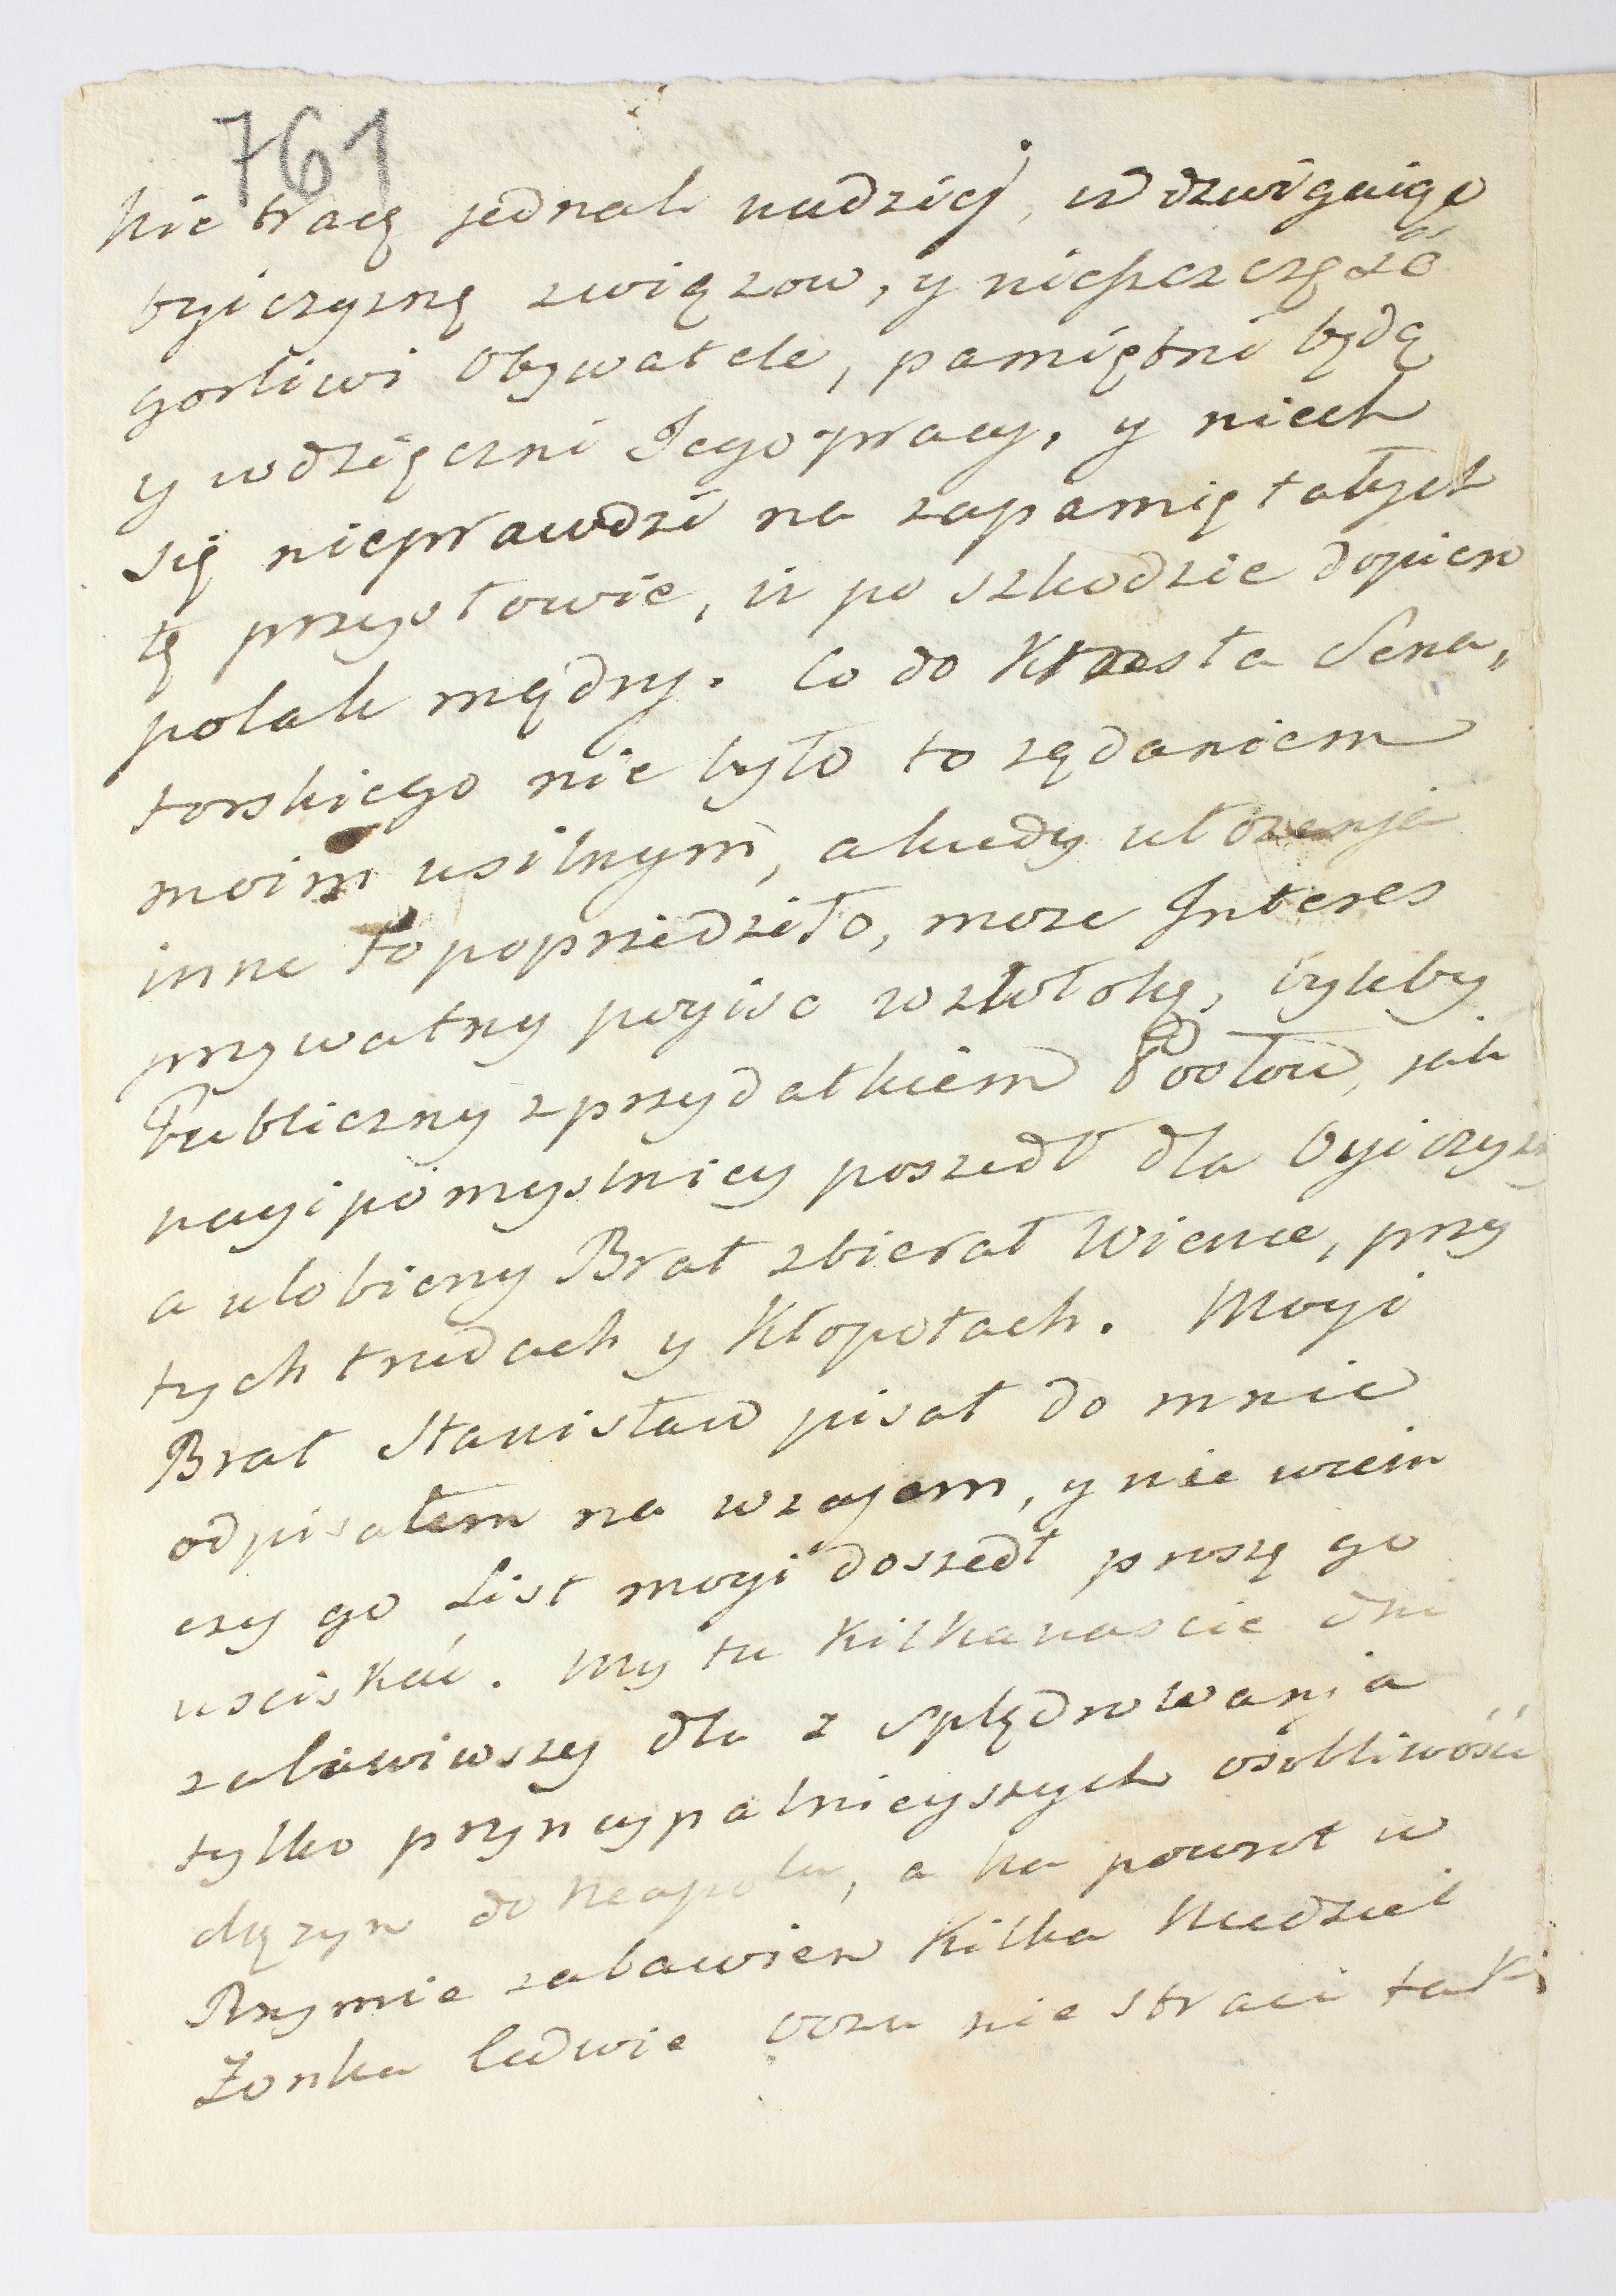 761
Nie tracę jednak nadziej, iż dzwigaięc
oyiczyznę zwięzow, y nieszczęść
gorliwi Obywatele, pamiętni będę
y wdzięczni Jego pracy, y niech
się nieprawdzi na zapamiętałych
tę przysłowie, iż po szkodzie dopiero
polak mędry. Co do Krzesła Sena„
torskiego nie było to żędaniem
moim usilnym, akiedy ułożenja
inne to poprzedziło, może Interes
prywatny poyisc w zwłokę, byleby
Publiczny z przydatkiem Posłow, jak
nayipomyslnicy poszedł dla Oyiczyzn
a ulobieny Brat zbierał Wience, przy
tych trudach y Kłopotach. Moyi
Brat Stanisław pisał do mnie
odpisałem na wzajem, y nie wiem
czy go List moyi doszedł proszę go
usciskać. My tu Kilkanascie dni
zabawiwszy dla z splędrowanja
tylko pryncypalnieyszych osobliwości
dęzym do Neapolu, a na powrot w
Rzymie zabawiem Kilka Niedziel
Żonka ledwie oczu nie straci tak